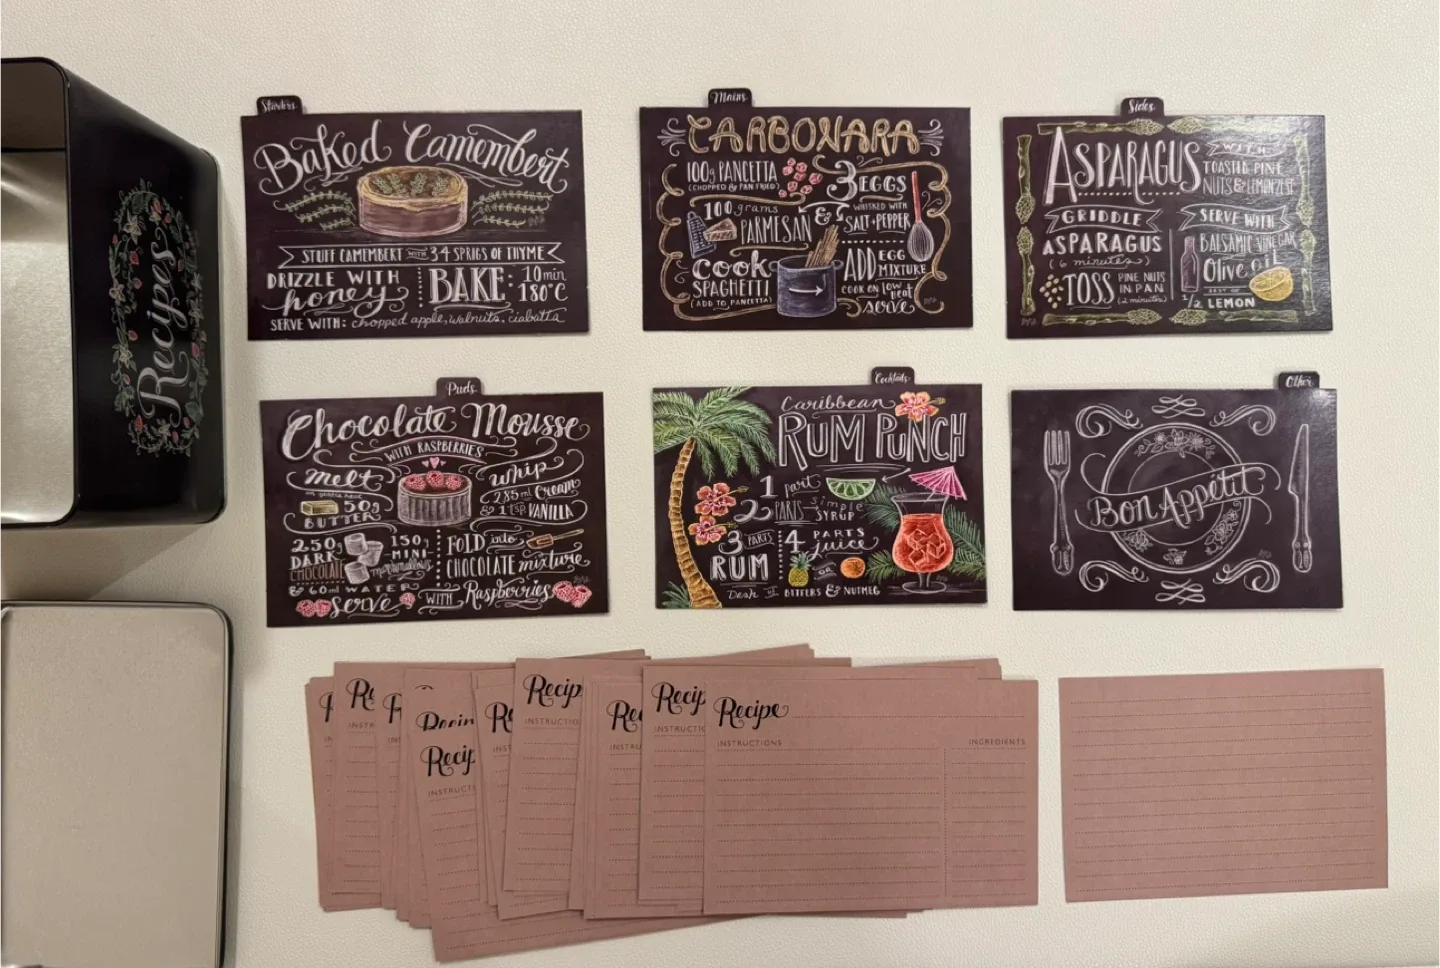 Recipes
Starters
Baked Camembert
STUFF CAMEMBERT WITH 3-4 SPRIGS OF THYME
DRIZZLE WITH
honey
BAKE: 10 min
180°C
SERVE WITH: chopped apple, walnuts, ciabatta
Mains
CARBONARA
100g PANCETTA
(CHOPPED & PAN FRIED)
3 EGGS
WHISKED WITH
SALT + PEPPER
100 grams
PARMESAN &
cook
SPAGHETTI
(ADD TO PANCETTA)
ADD EGG
MIXTURE
COOK ON low heat
& serve
Sides
ASPARAGUS
WITH
TOASTED PINE
NUTS & LEMON ZEST
GRIDDLE
ASPARAGUS
(6 minutes)
TOSS PINE NUTS
IN PAN
(2 minutes)
SERVE WITH
BALSAMIC VINEGAR
Olive oil
ZEST OF
1/2 LEMON
Puds
Chocolate Mousse
WITH RASPBERRIES
melt
50g
BUTTER
250g
DARK
CHOCOLATE
150g
MINI-
marshmallows
& 60ml WATER
whip
285 ml Cream
& 1 tsp VANILLA
FOLD into
CHOCOLATE mixture
serve WITH Raspberries
Cocktails
Caribbean
RUM PUNCH
1 part
2 PARTS simple
SYRUP
3 PARTS
RUM
4 PARTS
juice
OR
Dash OF BITTERS & NUTMEG
Other
Bon Appétit
Recipe
INSTRUCTIONS
INGREDIENTS